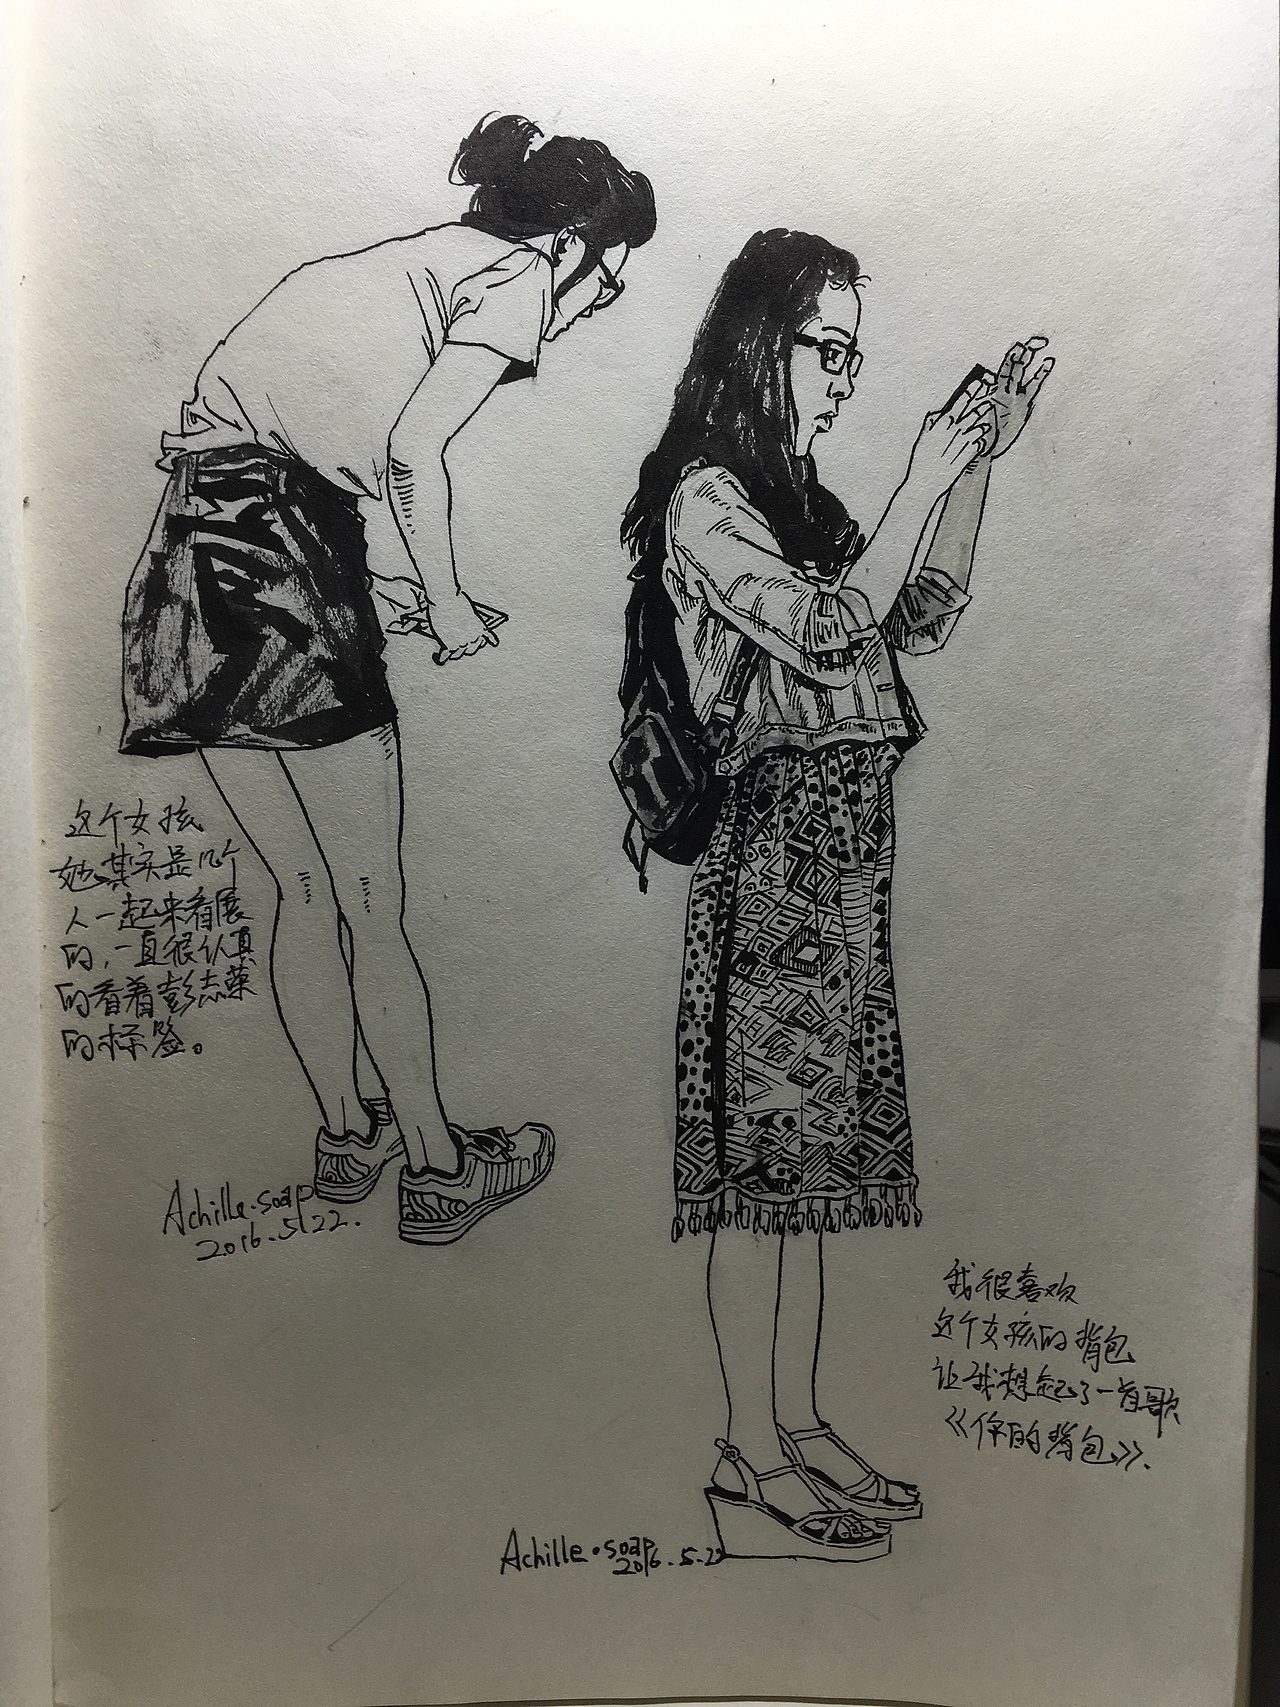 这个女孩
她其实是几个
人一起来看展
的，一直很认真
的看着彭志荣
的标签。
Achille.soap
2016.5.22.
我很喜欢
这个女孩的背包
让我想起了一首歌
《你的背包》.
Achille.soap
2016.5.22